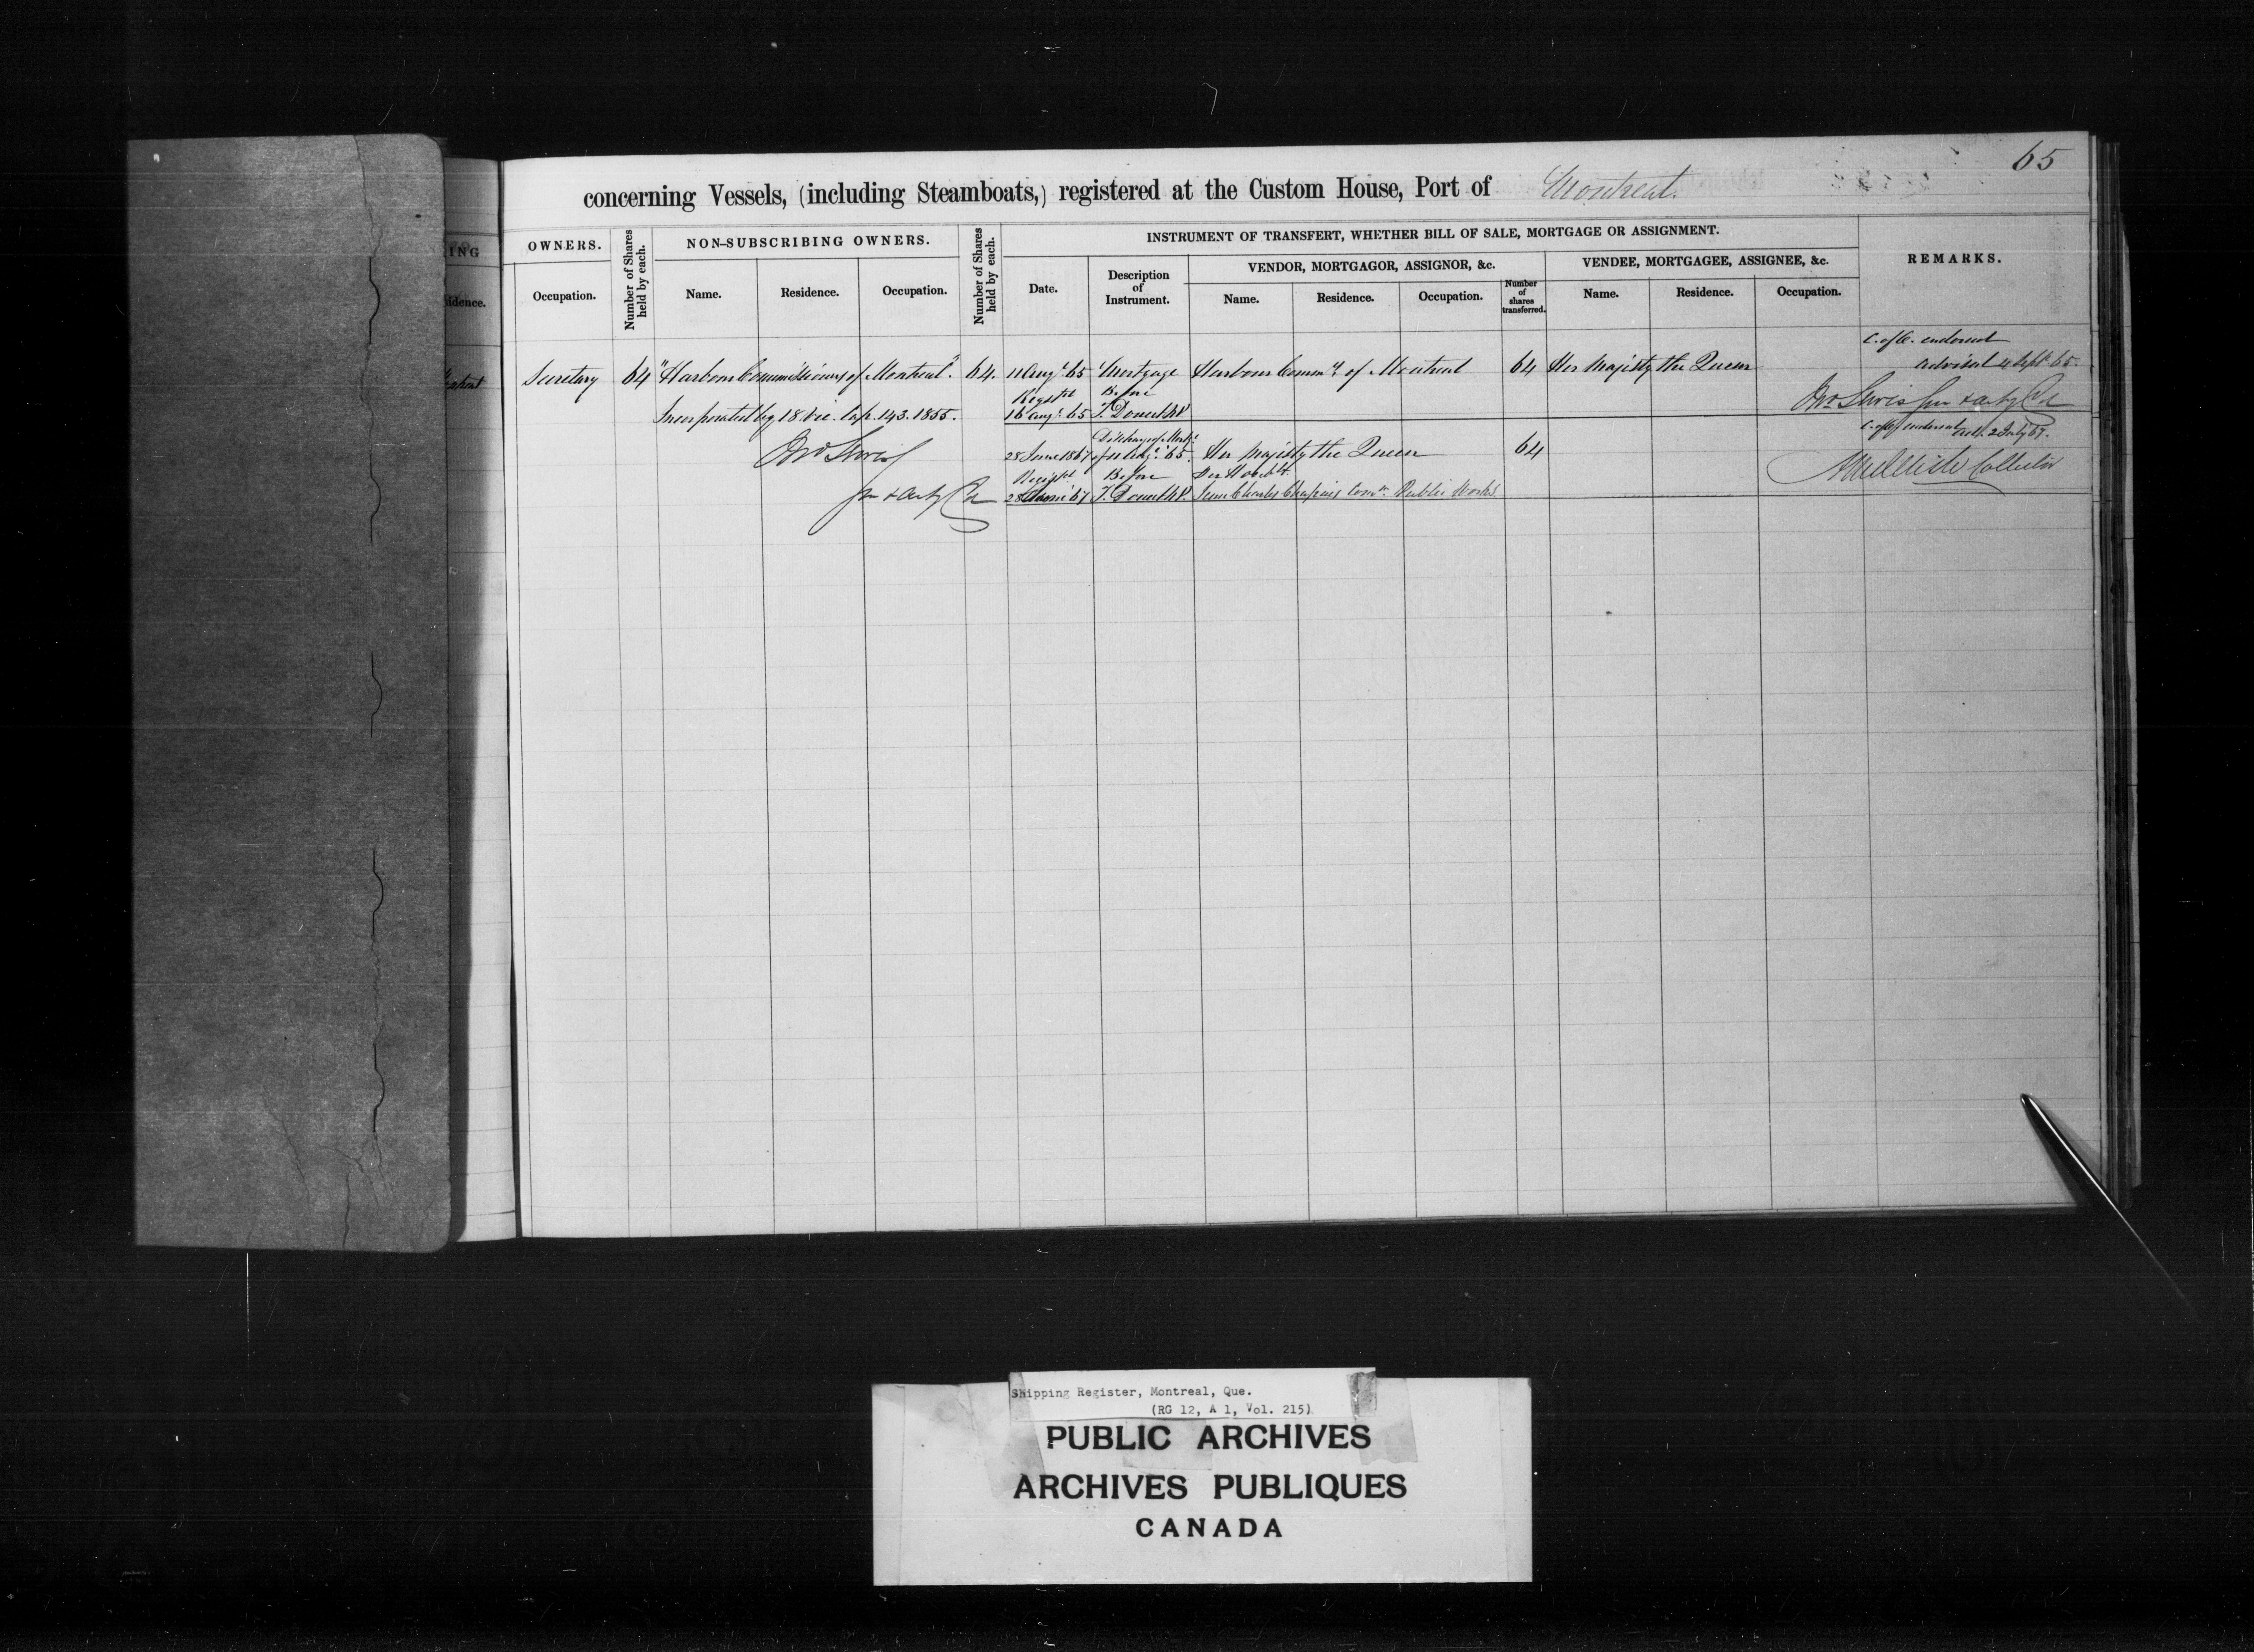 65
concerning Vessels, (including Steamboats,) registered at the Custom House, Port of Montreal.
ING
idence.
OWNERS.
Occupation.
Number of Shares held by each.
NON-SUBSCRIBING OWNERS.
Name.
Residence.
Occupation.
Number of Shares held by each.
INSTRUMENT OF TRANSFERT, WHETHER BILL OF SALE, MORTGAGE OR ASSIGNMENT.
Date.
Description of Instrument.
VENDOR, MORTGAGOR, ASSIGNOR, &c.
Name.
Residence.
Occupation.
Number of shares transferred.
VENDEE, MORTGAGEE, ASSIGNEE, &c.
Name.
Residence.
Occupation.
REMARKS.
C. of O. endorsed
Secretary 64 "Harbour Commissioners of Montreal." 64. 11 Augt 65 Mortgage Harbour Commrs of Montreal 64 Her Majesty the Queen advised 4 Sept 65.
Registd Before
Incorporated by 18 Vic. Cap. 143. 1855. 16 Augt 65 T. Doucet N.P.
Jno Lewis
C. of O. endorsed 2 July 67.
Discharge of Mortge
28 June 1867 of 11 Augt 65. Her Majesty the Queen 64
Registd Before Per Honble
28 June 67 T. Doucet N.P. Jean Charles Chapais Comr. Public Works
Collector
Shipping Register, Montreal, Que.
(RG 12, A 1, Vol. 215)
PUBLIC ARCHIVES
ARCHIVES PUBLIQUES
CANADA